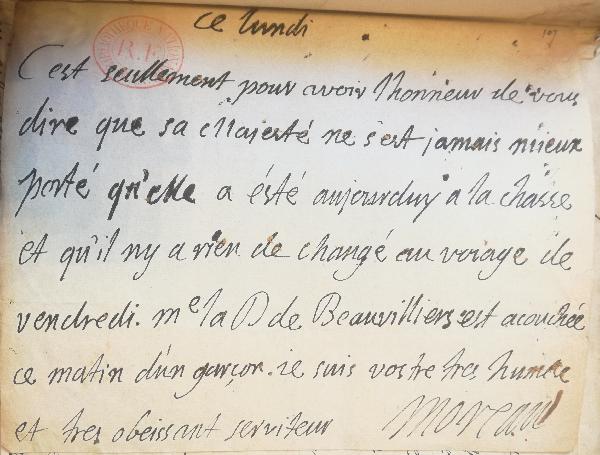 ce lundi
107
BIBLIOTHEQUE NATIONALE
R.F.
C'est seullement pour avoir lhonneur de vous
dire que sa Majesté ne s'est jamais mieux
porté qu'elle a ésté aujourduy a la chasse
et qu'il ny a rien de changé au voiage de
vendredi. me la D de Beauvilliers est acouchée
ce matin d'un garçon. ie suis vostre tres humble
et tres obeissant serviteur Moreau